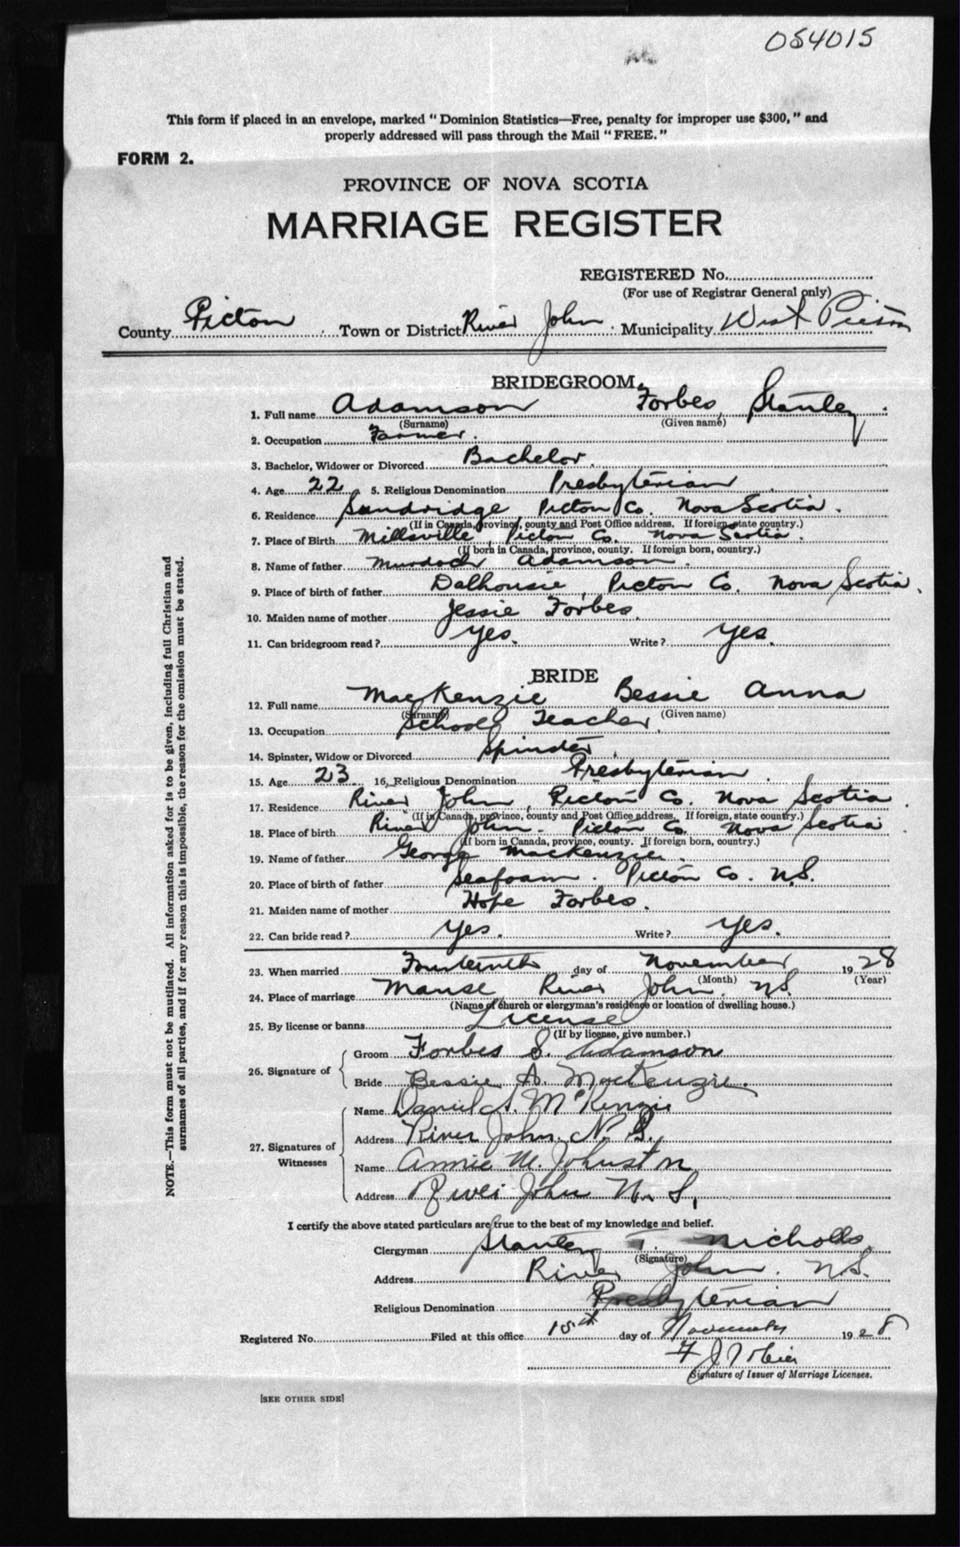 054015
This form if placed in an envelope, marked "Dominion Statistics—Free, penalty for improper use $300," and
properly addressed will pass through the Mail "FREE."
FORM 2.
PROVINCE OF NOVA SCOTIA
MARRIAGE REGISTER
REGISTERED No.
(For use of Registrar General only)
County Pictou Town or District River John Municipality West Pictou
BRIDEGROOM
1. Full name Adamson Forbes Stanley
(Surname) (Given name)
2. Occupation Farmer
3. Bachelor, Widower or Divorced Bachelor
4. Age 22 5. Religious Denomination Presbyterian
6. Residence Sundridge Pictou Co. Nova Scotia.
(If in Canada, province, county and Post Office address. If foreign, state country.)
7. Place of Birth Millsville, Pictou Co. Nova Scotia.
(If born in Canada, province, county. If foreign born, country.)
8. Name of father Murdoch Adamson.
9. Place of birth of father Dalhousie, Pictou Co. Nova Scotia.
10. Maiden name of mother Jessie Forbes.
11. Can bridegroom read? Yes. Write? Yes.
BRIDE
12. Full name MacKenzie Bessie Anna
(Surname) (Given name)
13. Occupation School Teacher.
14. Spinster, Widow or Divorced Spinster.
15. Age 23 16. Religious Denomination Presbyterian.
17. Residence River John, Pictou Co. Nova Scotia.
(If in Canada, province, county and Post Office address. If foreign, state country.)
18. Place of birth River John. Pictou Co. Nova Scotia.
(If born in Canada, province, county. If foreign born, country.)
19. Name of father George MacKenzie.
20. Place of birth of father Seafoam. Pictou Co. N.S.
21. Maiden name of mother Hope Forbes.
22. Can bride read? Yes. Write? Yes.
23. When married Fourteenth day of November 1928
(Month) (Year)
24. Place of marriage Manse River John. N.S.
(Name of church or clergyman's residence or location of dwelling house.)
25. By license or banns License
(If by license, give number.)
26. Signature of Groom Forbes S. Adamson
Bride Bessie A. MacKenzie.
27. Signatures of Witnesses Name Daniel A. McKenzie
Address River John, N.S.
Name Annie M. Johnston
Address River John N.S.
I certify the above stated particulars are true to the best of my knowledge and belief.
Clergyman Stanley T. Nicholls
(Signature)
Address River John. N.S.
Religious Denomination Presbyterian
Registered No. Filed at this office 15th day of November 1928
Signature of Issuer of Marriage Licenses.
[SEE OTHER SIDE]
NOTE.—This form must not be mutilated. All information asked for is to be given, including full Christian and
surnames of all parties, and if for any reason this is impossible, the reason for the omission must be stated.